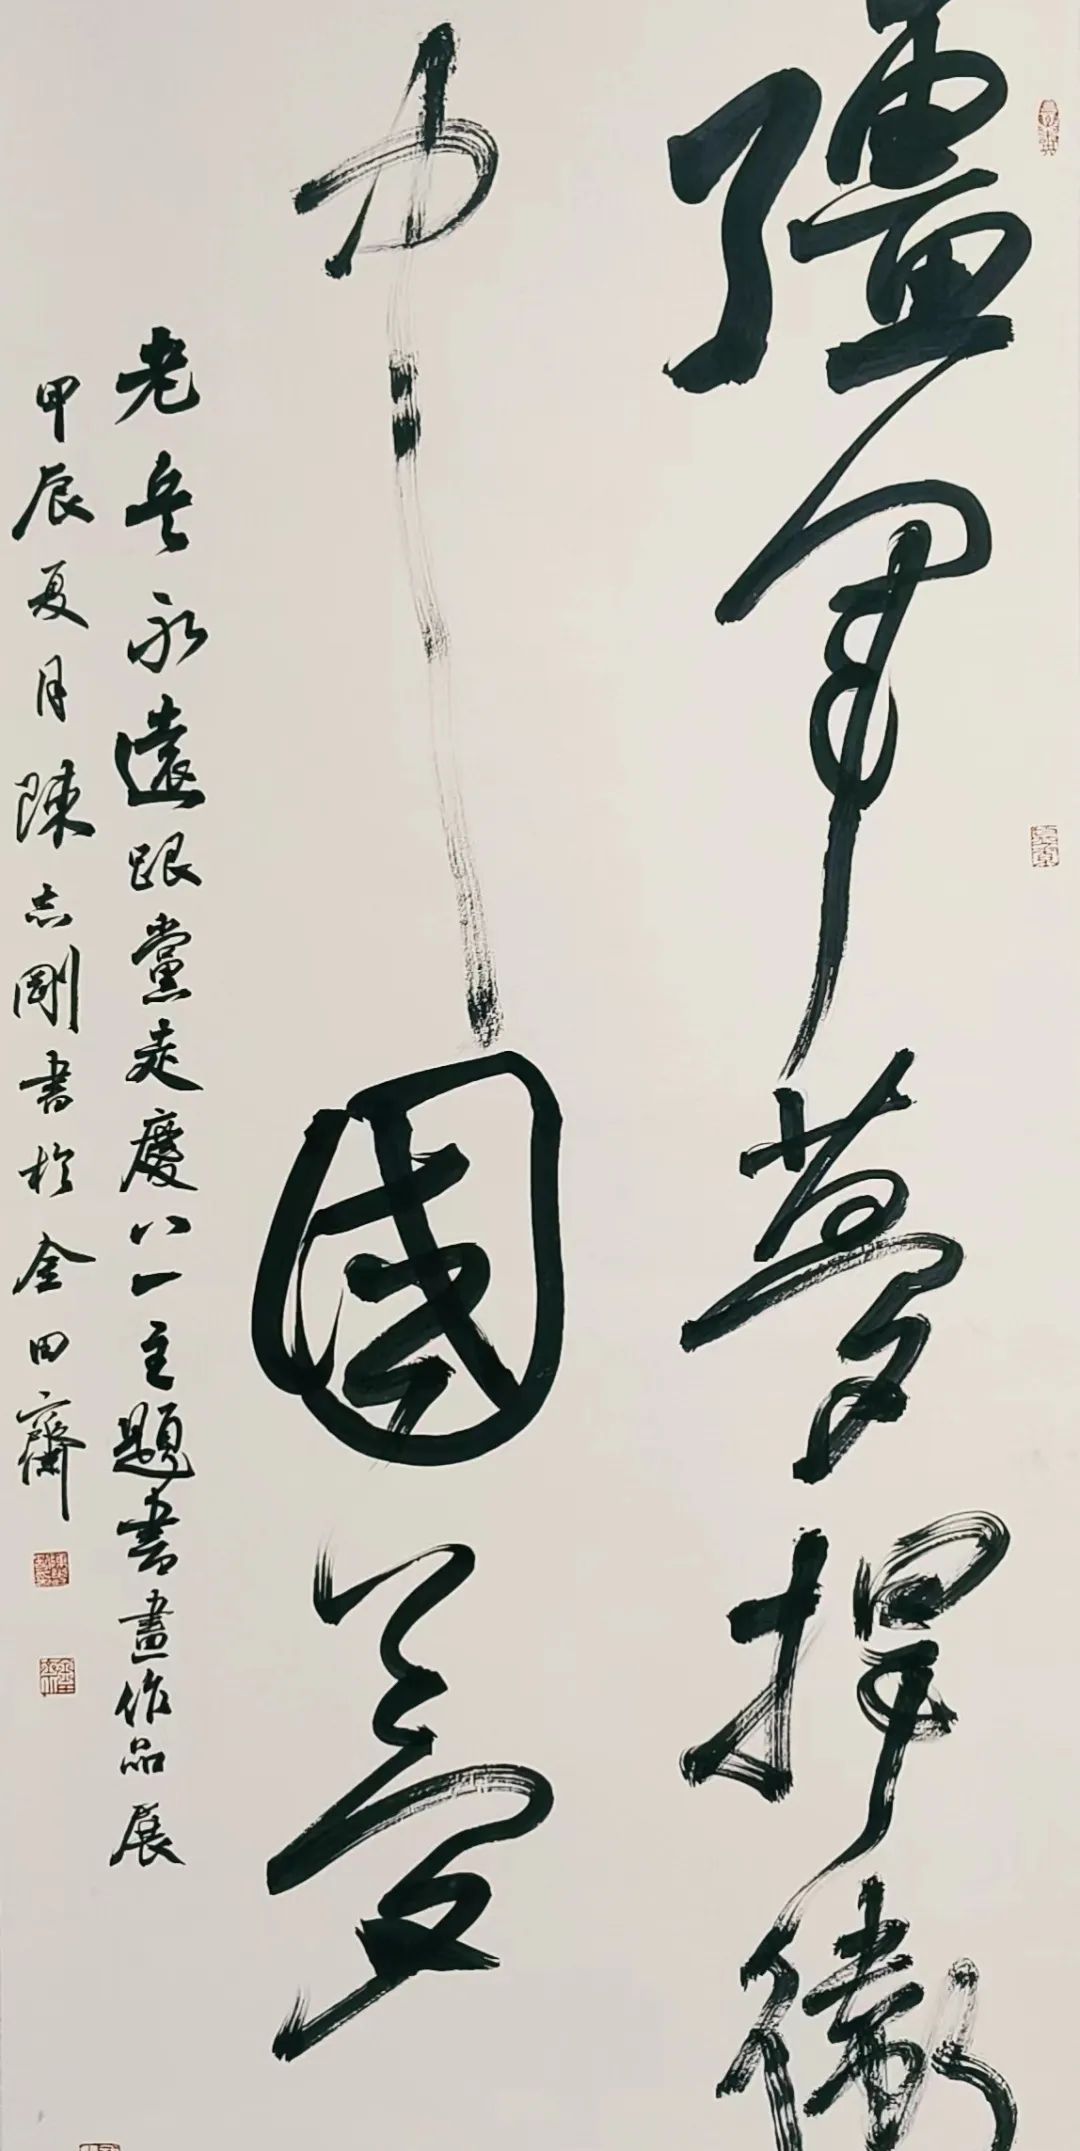 彊軍夢捍衛
中國夢
老兵永遠跟黨走慶八一主題書畫作品展
甲辰夏月陳志剛書於金田齋